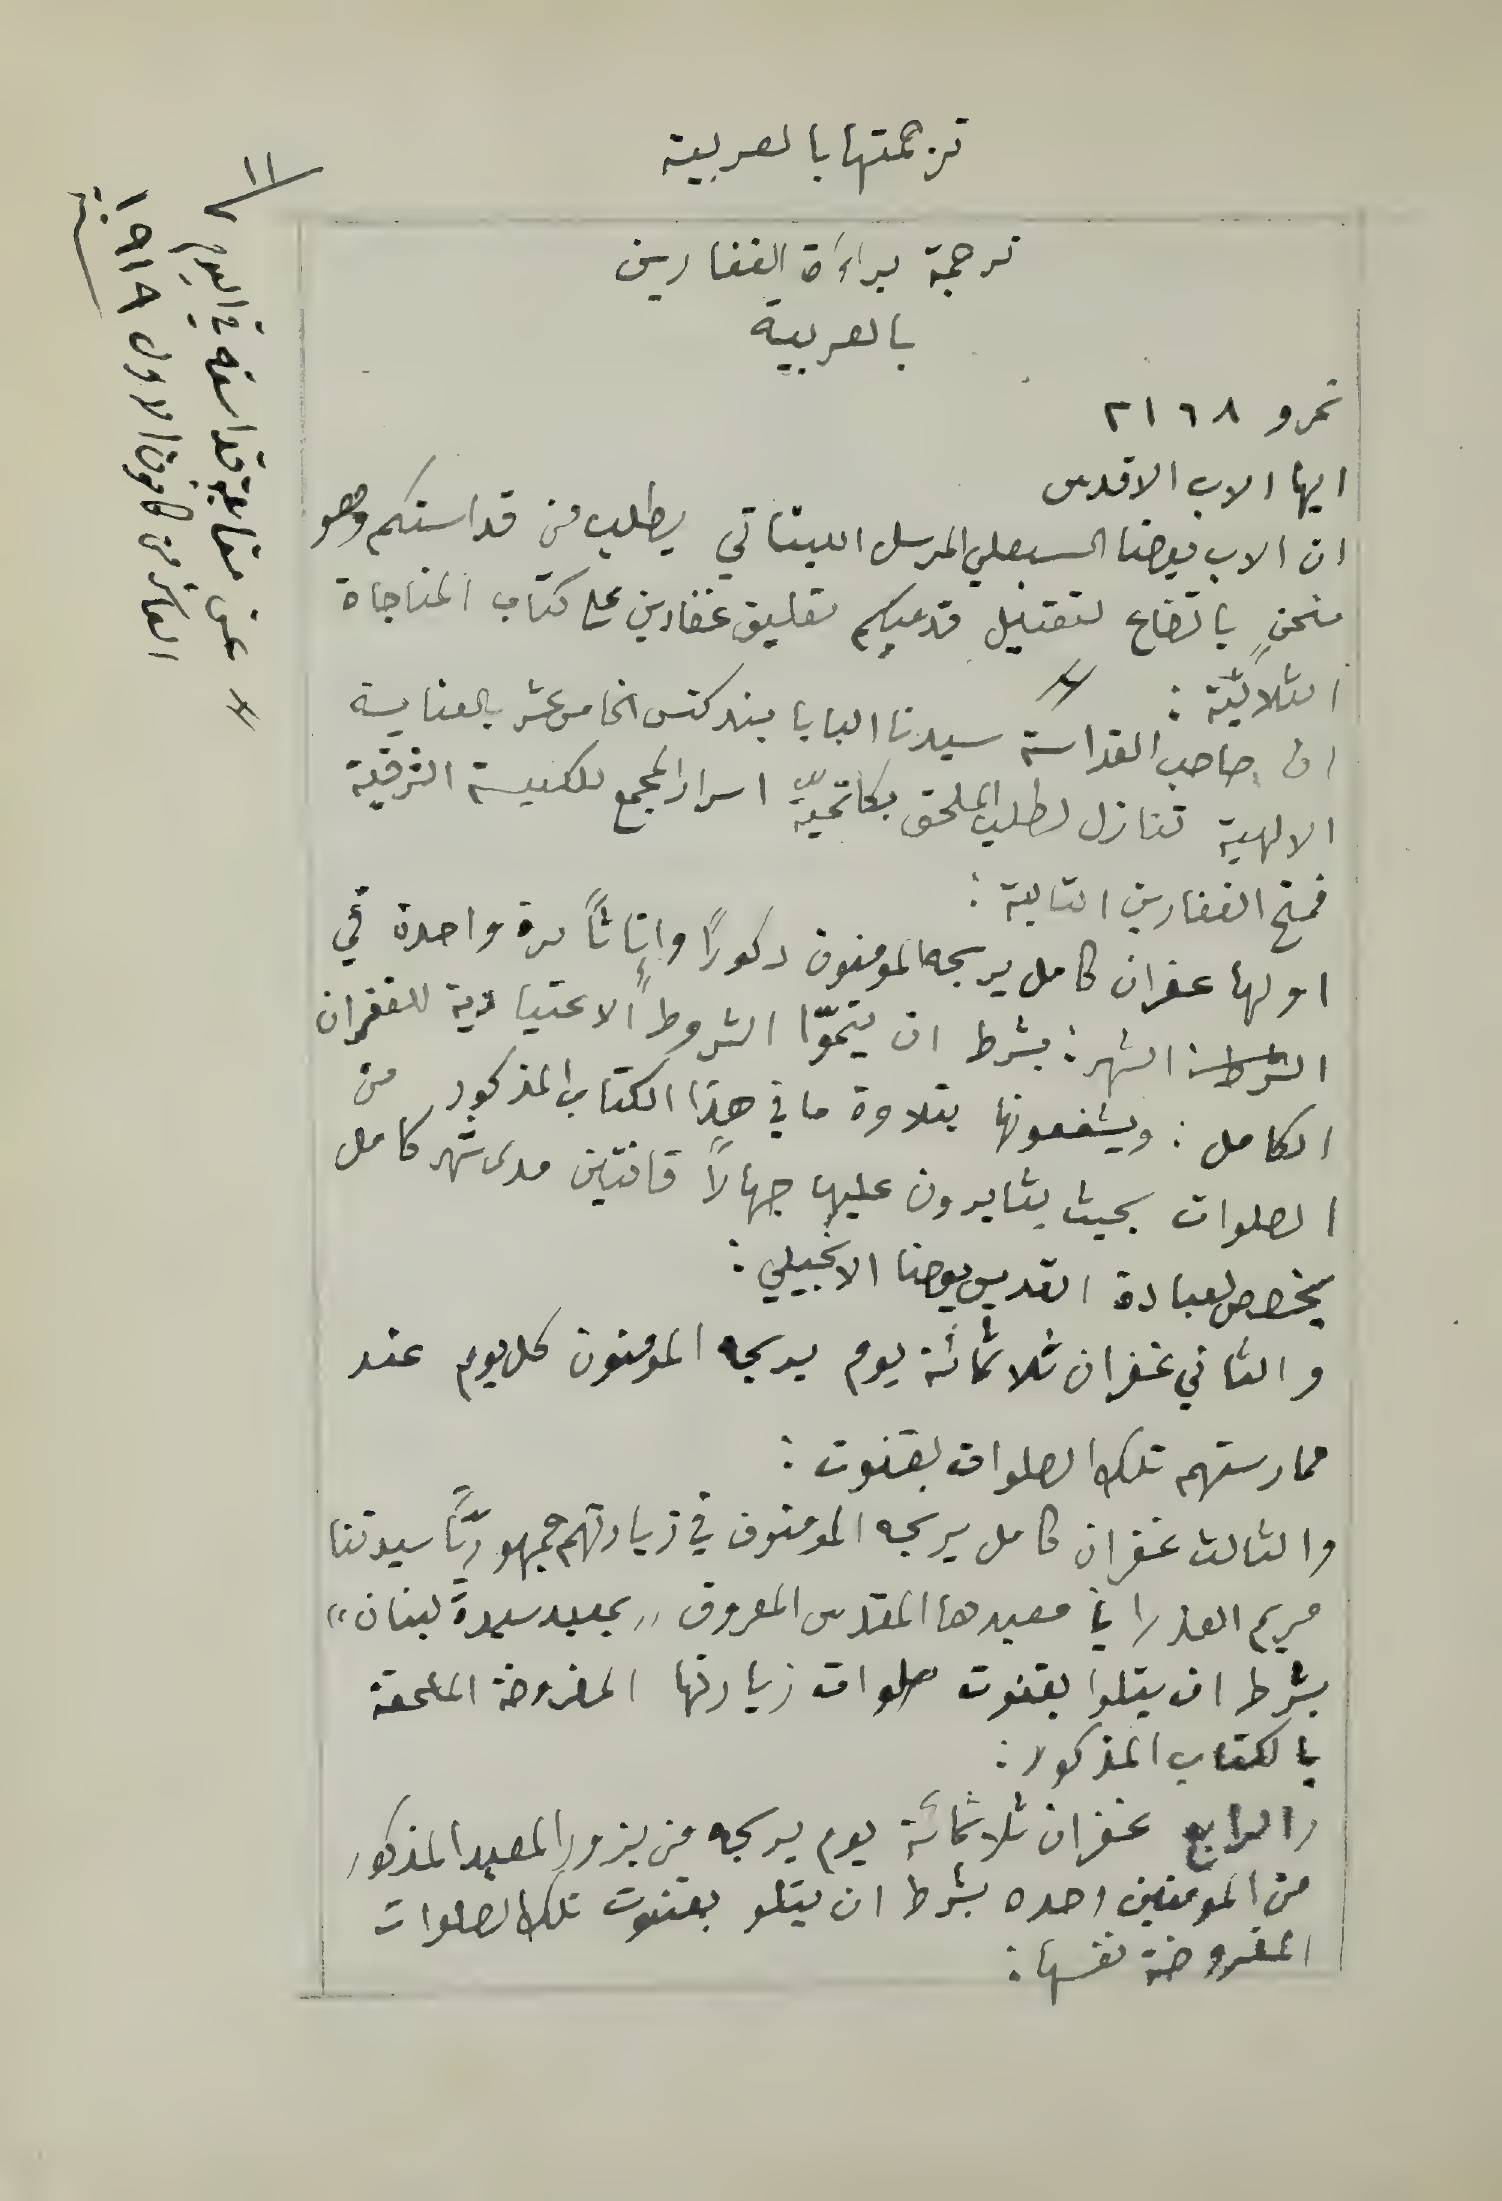 ترجمتها بالعربية
ترجمة براءة الغفارين
بالعربية
نمرو ٢١٦٨
ايها الاب الاقدس
ان الاب يوحنا السبعلي المرسل اللبناني يطلب من قداستكم وهو
منحنٍ باتضاع لتقبيل قدميكم تعليق غفارين على كتاب المناجاة
الثلاثية :
ان صاحب القداسة سيدنا البابا بندكتس الخامس عشر بالعناية
الالهية تنازل لطلب الملحق بكاتميّة اسرار المجمع للكنيسة الشرقية
فمنح الغفارين التالية :
اولها غفران كامل يربحه المومنون ذكورًا وإناثًا مرة واحدة في
الشهر : بشرط ان يتمّوا الشروط الاعتيادية للغفران
الكامل : ويشفعونها بتلاوة ما في هذا الكتاب المذكور من
الصلوات بحيث يثابرون عليها جهالًا قانتين مدى شهر كامل
يخصص لعبادة القديس يوحنا الانجيلي :
والثاني غفران ثلاثمائة يوم يربحه المومنون كل يوم عند
ممارستهم تلك الصلوات بقنوت :
والثالث غفران كامل يربحه المومنون في زيارتهم جمهوريًّا سيدتنا
مريم العذرا في معبدها المقدس المعروف „ بمعبد سيدة لبنان “
بشرط ان يتلوا بقنوت صلوات زيارتها المفروضة الملحقة
بالكتاب المذكور :
والرابع غفران ثلاثمائة يوم يربحه من يزور المعبد المذكور
من المومنين وحده بشرط ان يتلو بقنوت تلك الصلوات
المفروضة نفسها :
١١
عن مقابلة قداسته في اليوم
العاشر من كانون الاول ١٩١٨